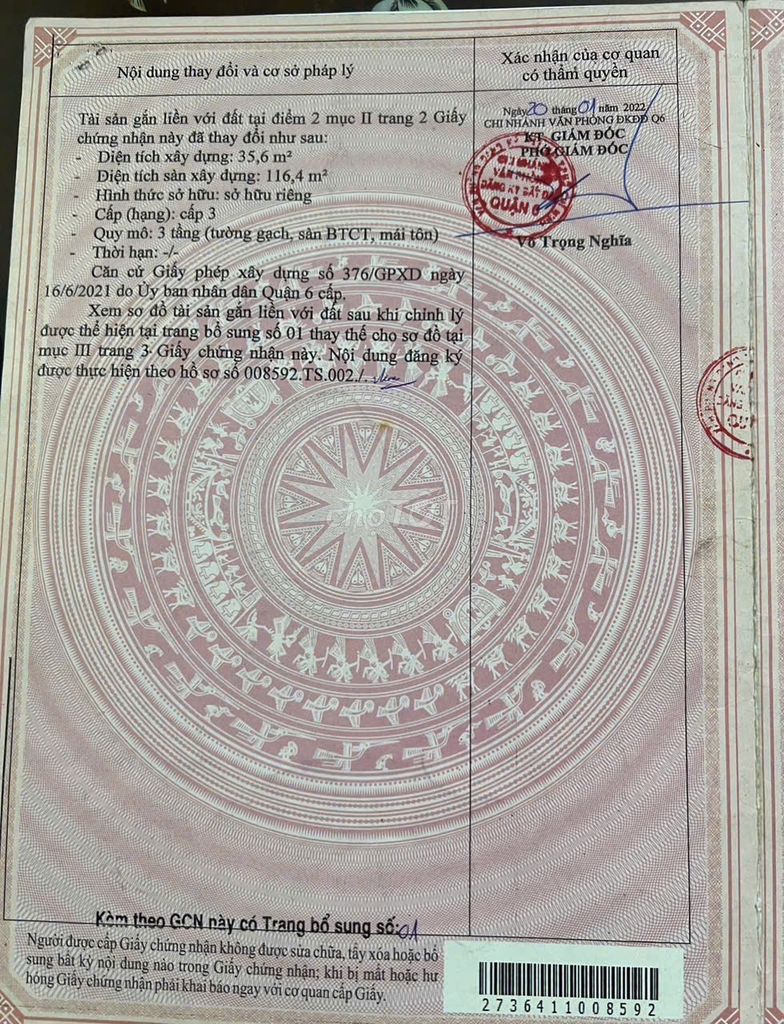 Nội dung thay đổi và cơ sở pháp lý
Xác nhận của cơ quan
có thẩm quyền
Tài sản gắn liền với đất tại điểm 2 mục II trang 2 Giấy
chứng nhận này đã thay đổi như sau:
- Diện tích xây dựng: 35,6 m²
- Diện tích sàn xây dựng: 116,4 m²
- Hình thức sở hữu: sở hữu riêng
- Cấp (hạng): cấp 3
- Quy mô: 3 tầng (tường gạch, sàn BTCT, mái tôn)
- Thời hạn: -/-
Căn cứ Giấy phép xây dựng số 376/GPXD ngày
16/6/2021 do Ủy ban nhân dân Quận 6 cấp.
Xem sơ đồ tài sản gắn liền với đất sau khi chỉnh lý
được thể hiện tại trang bổ sung số 01 thay thế cho sơ đồ tại
mục III trang 3 Giấy chứng nhận này. Nội dung đăng ký
được thực hiện theo hồ sơ số 008592.TS.002./.
Ngày 20 tháng 01 năm 2022
CHI NHÁNH VĂN PHÒNG ĐKĐĐ Q6
KT. GIÁM ĐỐC
PHÓ GIÁM ĐỐC
CHI NHÁNH
VĂN PHÒNG
ĐĂNG KÝ ĐẤT ĐAI
QUẬN 6
Võ Trọng Nghĩa
chợTỐT
Kèm theo GCN này có Trang bổ sung số: 01
Người được cấp Giấy chứng nhận không được sửa chữa, tẩy xóa hoặc bổ
sung bất kỳ nội dung nào trong Giấy chứng nhận; khi bị mất hoặc hư
hỏng Giấy chứng nhận phải khai báo ngay với cơ quan cấp Giấy.
2736411008592